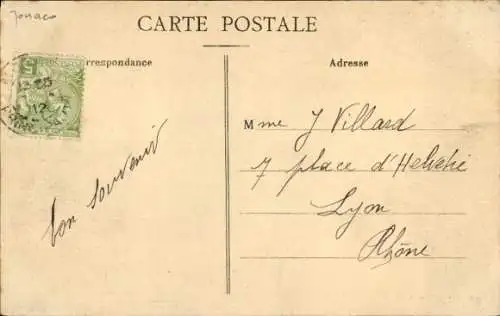 Monaco
CARTE POSTALE
rrespondance
Adresse
5
12
bon souvenir
Mme J Villard
7 place d'Helvétie
Lyon
Rhône